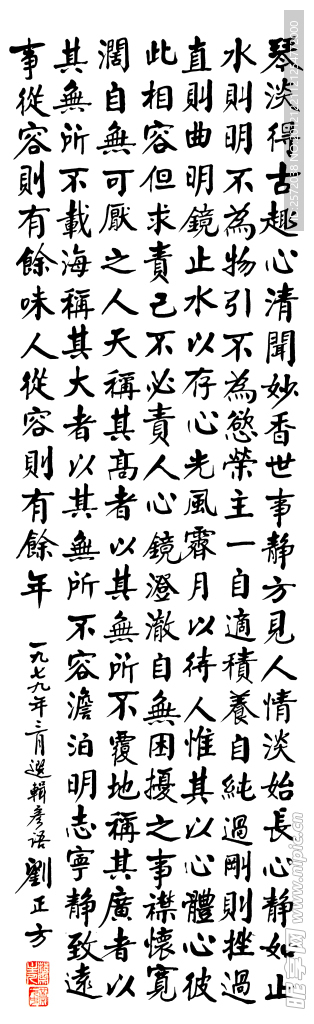 琴淡得古趣心清聞妙香世事靜方見人情淡始長心靜如止
水則明不為物引不為慾榮主一自適積養自純過剛則挫過
直則曲明鏡止水以存心光風霽月以待人惟其以心體心彼
此相容但求責己不必責人心鏡澄澈自無困擾之事襟懷寬
濶自無可厭之人天稱其高者以其無所不覆地稱其廣者以
其無所不載海稱其大者以其無所不容澹泊明志寧靜致遠
事從容則有餘味人從容則有餘年
一九七九年三月選輯彥语
劉正方
昵图网 www.nipic.com